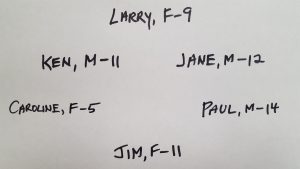 LARRY, F-9
KEN, M-11 JANE, M-12
CAROLINE, F-5 PAUL, M-14
JIM, F-11